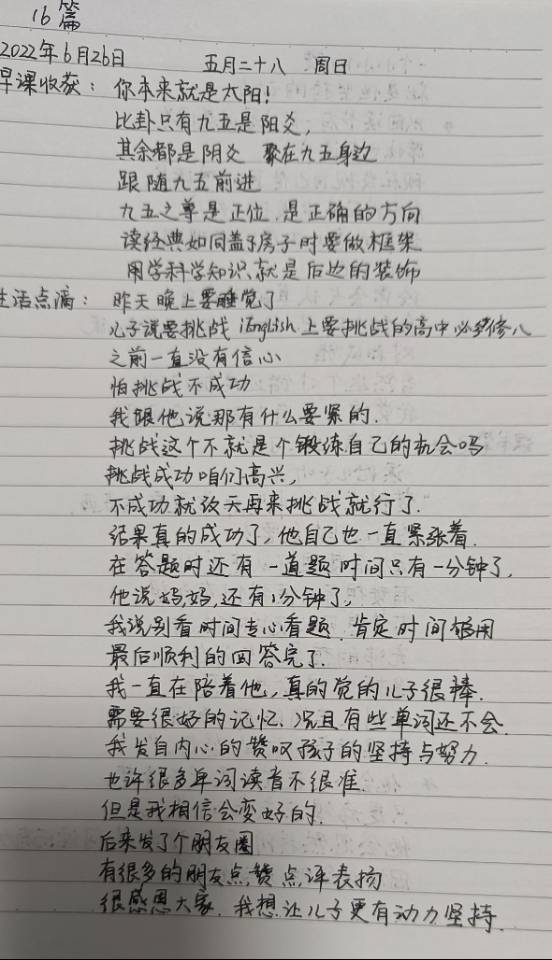 16篇
2022年6月26日 五月二十八 周日
早课收获：你本来就是太阳！
比卦只有九五是阳爻，
其余都是阴爻 聚在九五身边
跟随九五前进
九五之尊是正位，是正确的方向
读经典如同盖房子时要做框架
用学科学知识就是后边的装饰
生活点滴：昨天晚上要睡觉了
儿子说要挑战iEnglish上要挑战的高中必修八
之前一直没有信心
怕挑战不成功
我跟他说那有什么要紧的．
挑战这个不就是个锻练自己的机会吗
挑战成功咱们高兴，
不成功就改天再来挑战就行了．
结果真的成功了，他自己也一直紧张着．
在答题时还有一道题时间只有一分钟了，
他说妈妈，还有1分钟了，
我说别看时间专心看题．肯定时间够用
最后顺利的回答完了．
我一直在陪着他，真的觉的儿子很棒．
需要很好的记忆、况且有些单词还不会．
我发自内心的赞叹孩子的坚持与努力．
也许很多单词读音不很准．
但是我相信会变好的．
后来发了个朋友圈
有很多的朋友点赞点评表扬
很感恩大家．我想让儿子更有动力坚持．